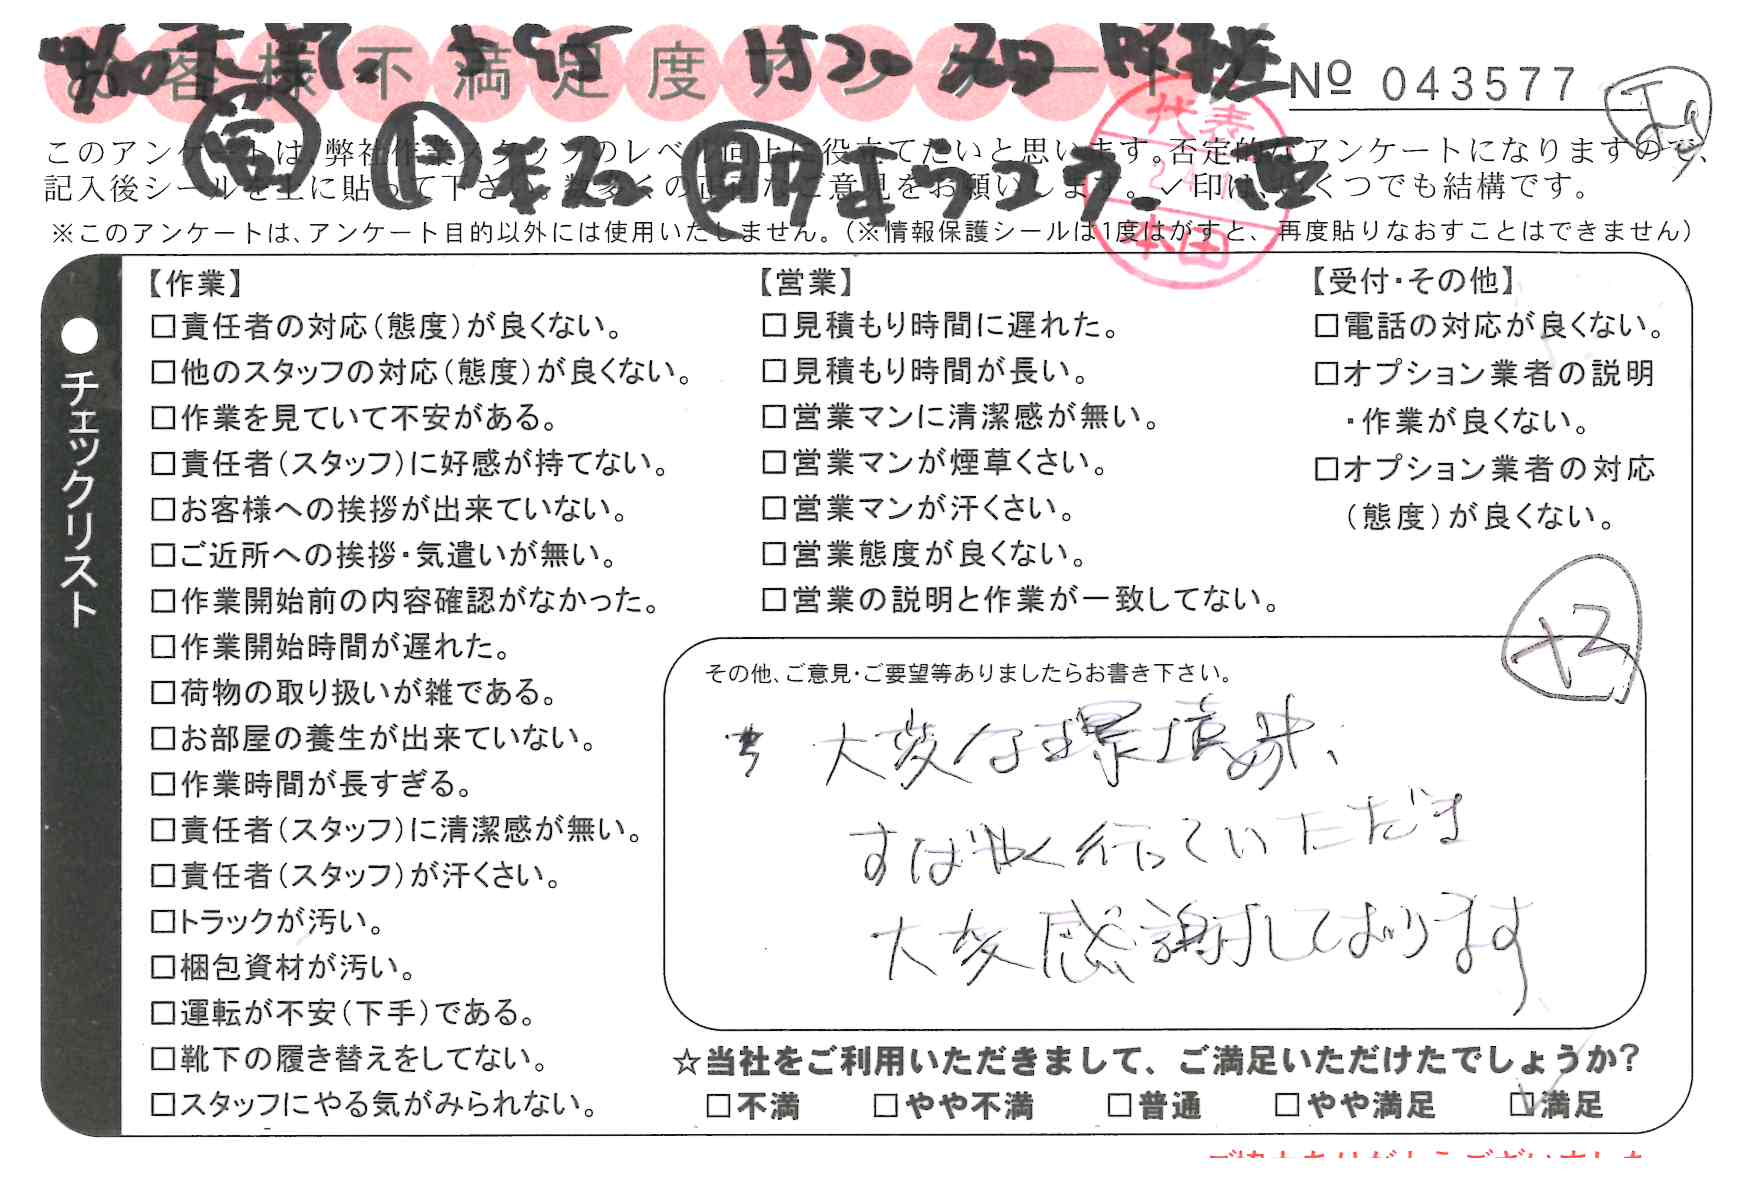 お客様不満足度アンケート
№ 043577
このアンケートは、弊社作業スタッフのレベル向上に役立てたいと思います。否定的なアンケートになりますので、
記入後シールを上に貼って下さい。数多くの正直なご意見をお願いします。✓印は、いくつでも結構です。
※このアンケートは、アンケート目的以外には使用いたしません。(※情報保護シールは1度はがすと、再度貼りなおすことはできません)
代表
本田
●チェックリスト
【作業】
□責任者の対応(態度)が良くない。
□他のスタッフの対応(態度)が良くない。
□作業を見ていて不安がある。
□責任者(スタッフ)に好感が持てない。
□お客様への挨拶が出来ていない。
□ご近所への挨拶・気遣いが無い。
□作業開始前の内容確認がなかった。
□作業開始時間が遅れた。
□荷物の取り扱いが雑である。
□お部屋の養生が出来ていない。
□作業時間が長すぎる。
□責任者(スタッフ)に清潔感が無い。
□責任者(スタッフ)が汗くさい。
□トラックが汚い。
□梱包資材が汚い。
□運転が不安(下手)である。
□靴下の履き替えをしてない。
□スタッフにやる気がみられない。
【営業】
□見積もり時間に遅れた。
□見積もり時間が長い。
□営業マンに清潔感が無い。
□営業マンが煙草くさい。
□営業マンが汗くさい。
□営業態度が良くない。
□営業の説明と作業が一致してない。
【受付・その他】
□電話の対応が良くない。
□オプション業者の説明
・作業が良くない。
□オプション業者の対応
(態度)が良くない。
その他、ご意見・ご要望等ありましたらお書き下さい。
大変な環境の中、
すばやく行っていただき
大変感謝しております
☆当社をご利用いただきまして、ご満足いただけたでしょうか?
□不満 □やや不満 □普通 □やや満足 ☑満足
ご協力ありがとうございました